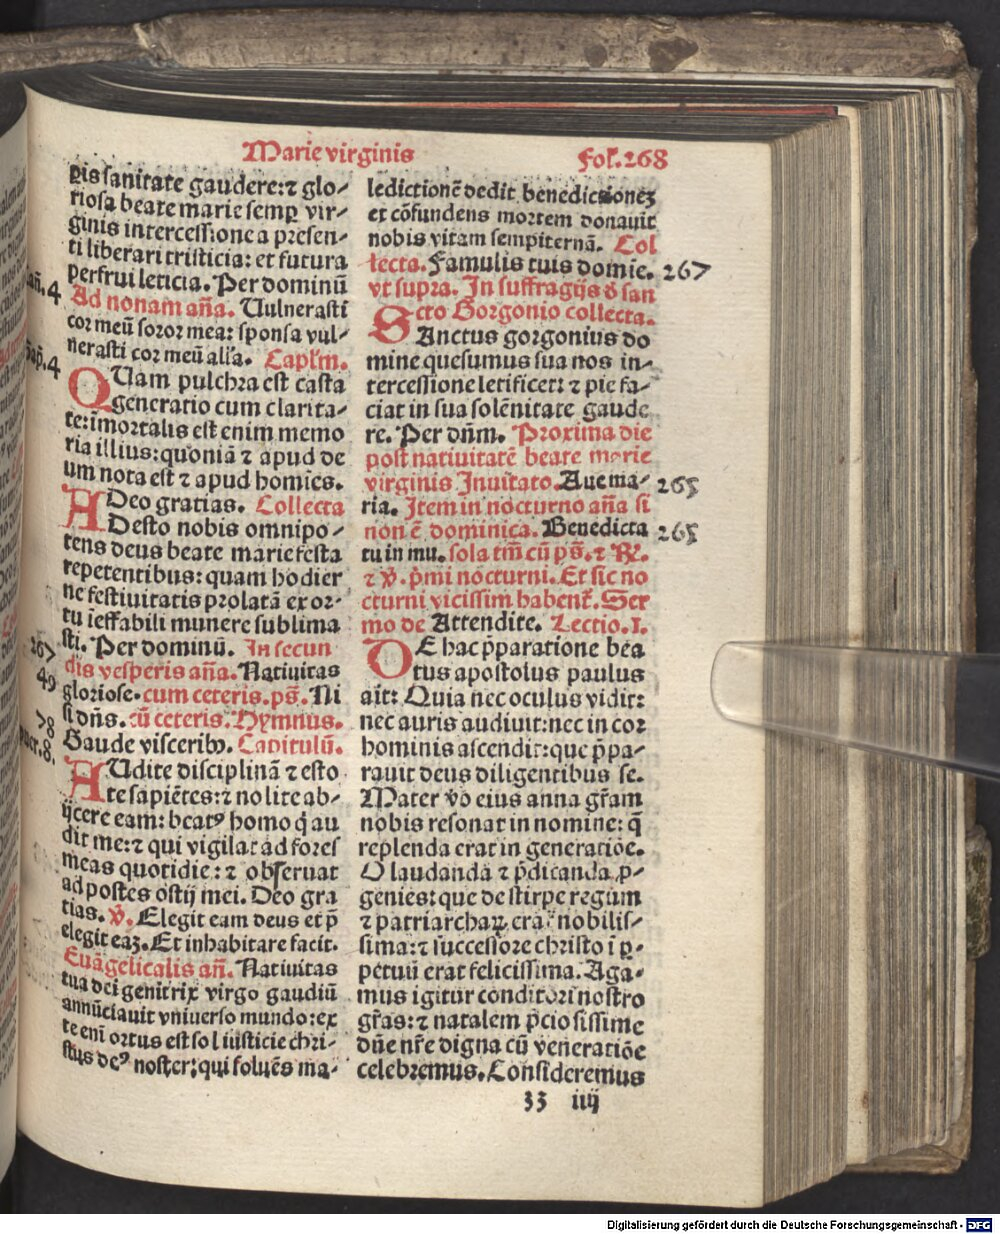 Marie virginis
Fol.268
pis sanitate gaudere: ⁊ glo-
riosa beate marie semꝑ vir-
ginis intercessione a presen-
ti liberari tristicia: et futura
perfrui leticia. Per dominū
Ad nonam aña. Uulnerasti
cor meū soror mea: sponsa vul-
nerasti cor meū all'a. Capl'm.
QUam pulchra est casta
generatio cum clarita-
te: īmortalis est enim memo
ria illius: quoniā ⁊ apud de
um nota est ⁊ apud homīes.
Deo gratias. Collecta
ADesto nobis omnipo-
tens deus beate marie festa
repetentibus: quam hodier
ne festiuitatis prolatā exor-
tu ineffabili munere sublima
sti. Per dominū. In secun
dis vesperis aña. Natiuitas
gloriose. cum ceteris. ps̄. Ni
si dn̄s. cū ceteris. Hymnus.
Gaude visceribꝫ. Capitulū.
AUdite disciplinā ⁊ esto
te sapiētes: ⁊ nolite ab-
ijcere eam: beatꝰ homo q̄ au
dit me: ⁊ qui vigilat ad fores
meas quotidie: ⁊ obseruat
ad postes ostij mei. Deo gra
tias. ℣. Elegit eam deus et p̄
elegit eaꝫ. Et inhabitare facit.
Euāgelicalis añ. Natiuitas
tua dei genitrix virgo gaudiū
annūciauit vniuerso mundo: ex
te enī ortus est sol iusticie chri-
stus deꝰ noster: qui soluēs ma-
añ. 4
Sap̄. 4
267
49
78
puer. 8.
ledictionē dedit benedictioneꝫ
et cōfundens mortem donauit
nobis vitam sempiternā. Col
lecta. Famulis tuis domīe. 267
vt supra. In suffragijs d̄ san
cto Gorgonio collecta.
SAnctus gorgonius do
mine quesumus sua nos in-
tercessione letificet: ⁊ pie fa-
ciat in sua solēnitate gaude
re. Per dn̄m. Proxima die
post natiuitatē beate marie
virginis Inuitato. Aue ma- 265
ria. Item in nocturno aña si
non ē dominica. Benedicta 265
tu in mu. sola tm̄ cū ps̄. ⁊ ℟.
⁊ ℣. p̄mi nocturni. Et sic no
cturni vicissim habent̄. Ser
mo de Attendite. Lectio. I.
DE hac p̄paratione bea
tus apostolus paulus
ait: Quia nec oculus vidit:
nec auris audiuit: nec in cor
hominis ascendit: que p̄pa-
rauit deus diligentibus se.
Mater v̄o eius anna gr̄am
nobis resonat in nomine: q̄
replenda erat in generatiōe.
O laudandā ⁊ p̄dicanda ꝓ-
genies: que de stirpe regum
⁊ patriarchaꝝ erat nobilis-
sima: ⁊ successore christo ī ꝑ-
petuū erat felicissima. Aga-
mus igitur conditori nostro
gr̄as: ⁊ natalem p̄ciosissime
dn̄e nr̄e digna cū veneratiōe
celebremus. Consideremus
33 iiij
Digitalisierung gefördert durch die Deutsche Forschungsgemeinschaft - DFG